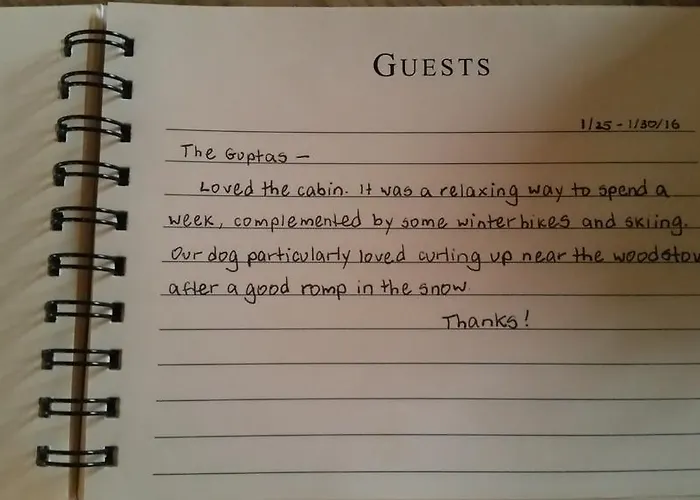 GUESTS
1/25 - 1/30/16
The Guptas —
Loved the cabin. It was a relaxing way to spend a
week, complemented by some winter hikes and skiing.
Our dog particularly loved curling up near the woodstov
after a good romp in the snow.
Thanks!